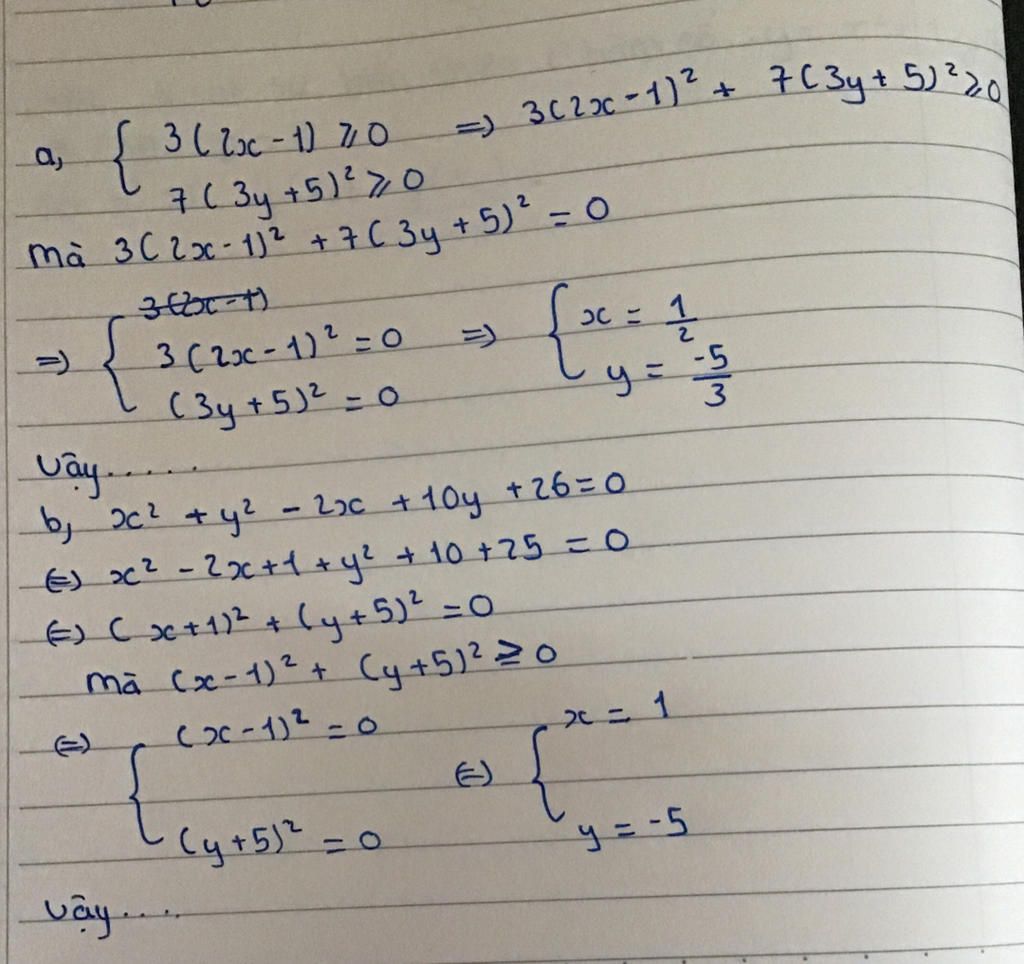 a, { 3(2x-1) ⩾0 => 3(2x-1)² + 7(3y+5)² ⩾0
7(3y+5)² ⩾0
mà 3(2x-1)² + 7(3y+5)² = 0
3(2x-1)
=> { 3(2x-1)² = 0 => { x = 1/2
(3y+5)² = 0 y = -5/3
Vậy.....
b, x² + y² - 2x + 10y + 26 = 0
(=) x² - 2x + 1 + y² + 10 + 25 = 0
(=) (x+1)² + (y+5)² = 0
mà (x-1)² + (y+5)² ≥ 0
(=) { (x-1)² = 0 (=) { x = 1
(y+5)² = 0 y = -5
Vậy....